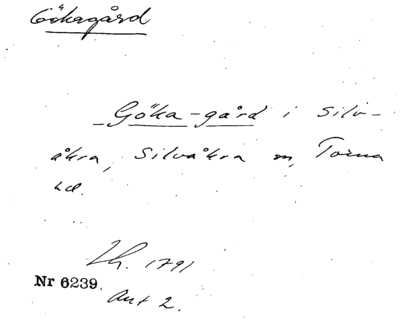 Gökagård
Göka-gård i Silv-
åkra, Silvåkra sn, Torna
hd.
Lh. 1791
Nr 6239.
Akt 2.